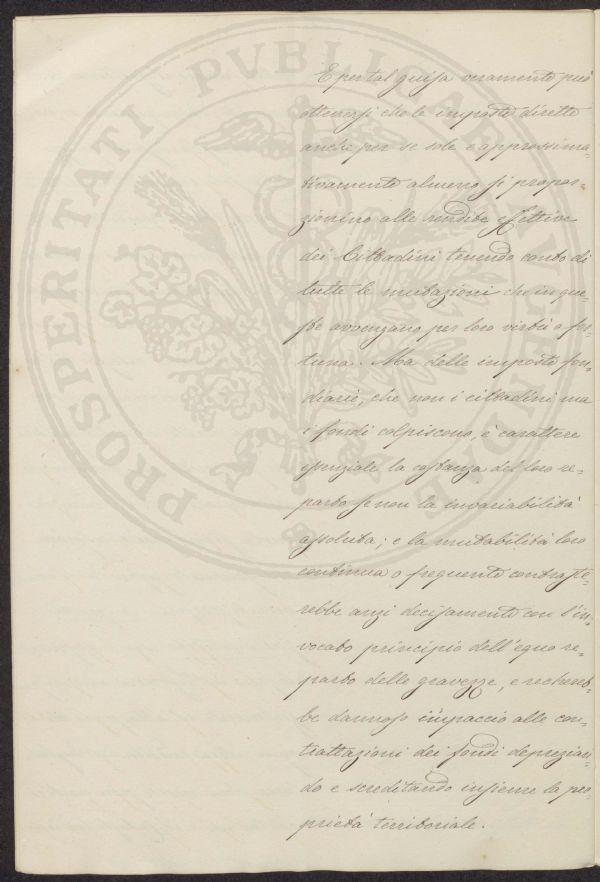 E per tal guisa veramente può
ottenersi che le imposte dirette
anche per se sole e approssima-
tivamente almeno si propor-
zionino alle rendite effettive
dei Cittadini tenendo conto di
tutte le mutazioni che in que-
ste avvengano per loro virtù o for-
tuna. Ma delle imposte fon-
diarie, che non i cittadini ma
i fondi colpiscono, è carattere
essenziale la costanza del loro re-
parto se non la invariabilità
assoluta; e la mutabilità loro
continua o frequente contraste-
rebbe anzi decisamente con l'in-
vocato principio dell'equo re-
parto delle gravezze, e recherebbe
be dannoso impaccio alle con-
trattazioni dei fondi deprezian-
do e screditando insieme la pro-
prietà territoriale.
PROSPERITATI PVBLICAE